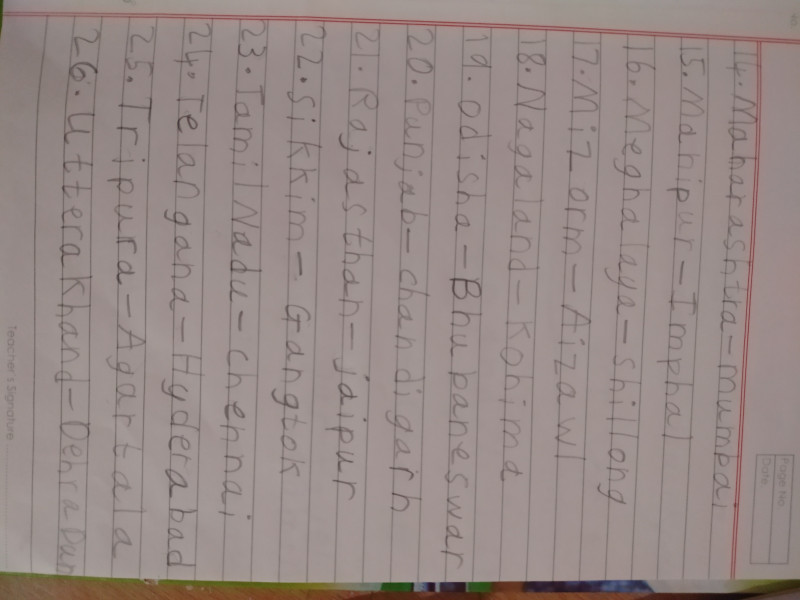 Page No.
Date
14. Maharashtra - mumbai
15. Manipur - Imphal
16. Meghalaya - shillong
17. Mizorm - Aizawl
18. Nagaland - Kohima
19. Odisha - Bhubaneswar
20. Punjab - chandigarh
21. Rajasthan - jaipur
22. Sikkim - Gangtok
23. Tamil Nadu - chennai
24. Telangana - Hyderabad
25. Tripura - Agartala
26. Uttera Khand - Dehra Dun
Teacher's Signature